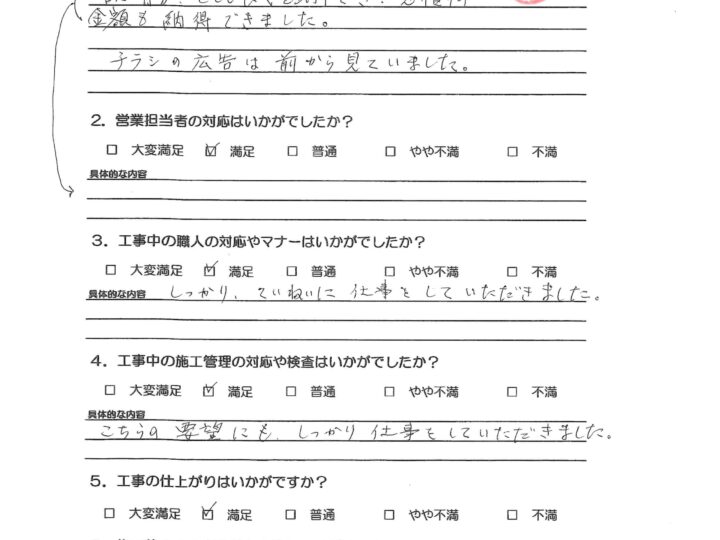 金額も納得できました。
チラシの広告は前から見ていました。
2. 営業担当者の対応はいかがでしたか？
□ 大変満足 ☑ 満足 □ 普通 □ やや不満 □ 不満
具体的な内容
3. 工事中の職人の対応やマナーはいかがでしたか？
□ 大変満足 ☑ 満足 □ 普通 □ やや不満 □ 不満
具体的な内容 しっかり、ていねいに仕事をしていただきました。
4. 工事中の施工管理の対応や検査はいかがでしたか？
□ 大変満足 ☑ 満足 □ 普通 □ やや不満 □ 不満
具体的な内容
こちらの要望にも、しっかり仕事をしていただきました。
5. 工事の仕上がりはいかがですか？
□ 大変満足 ☑ 満足 □ 普通 □ やや不満 □ 不満